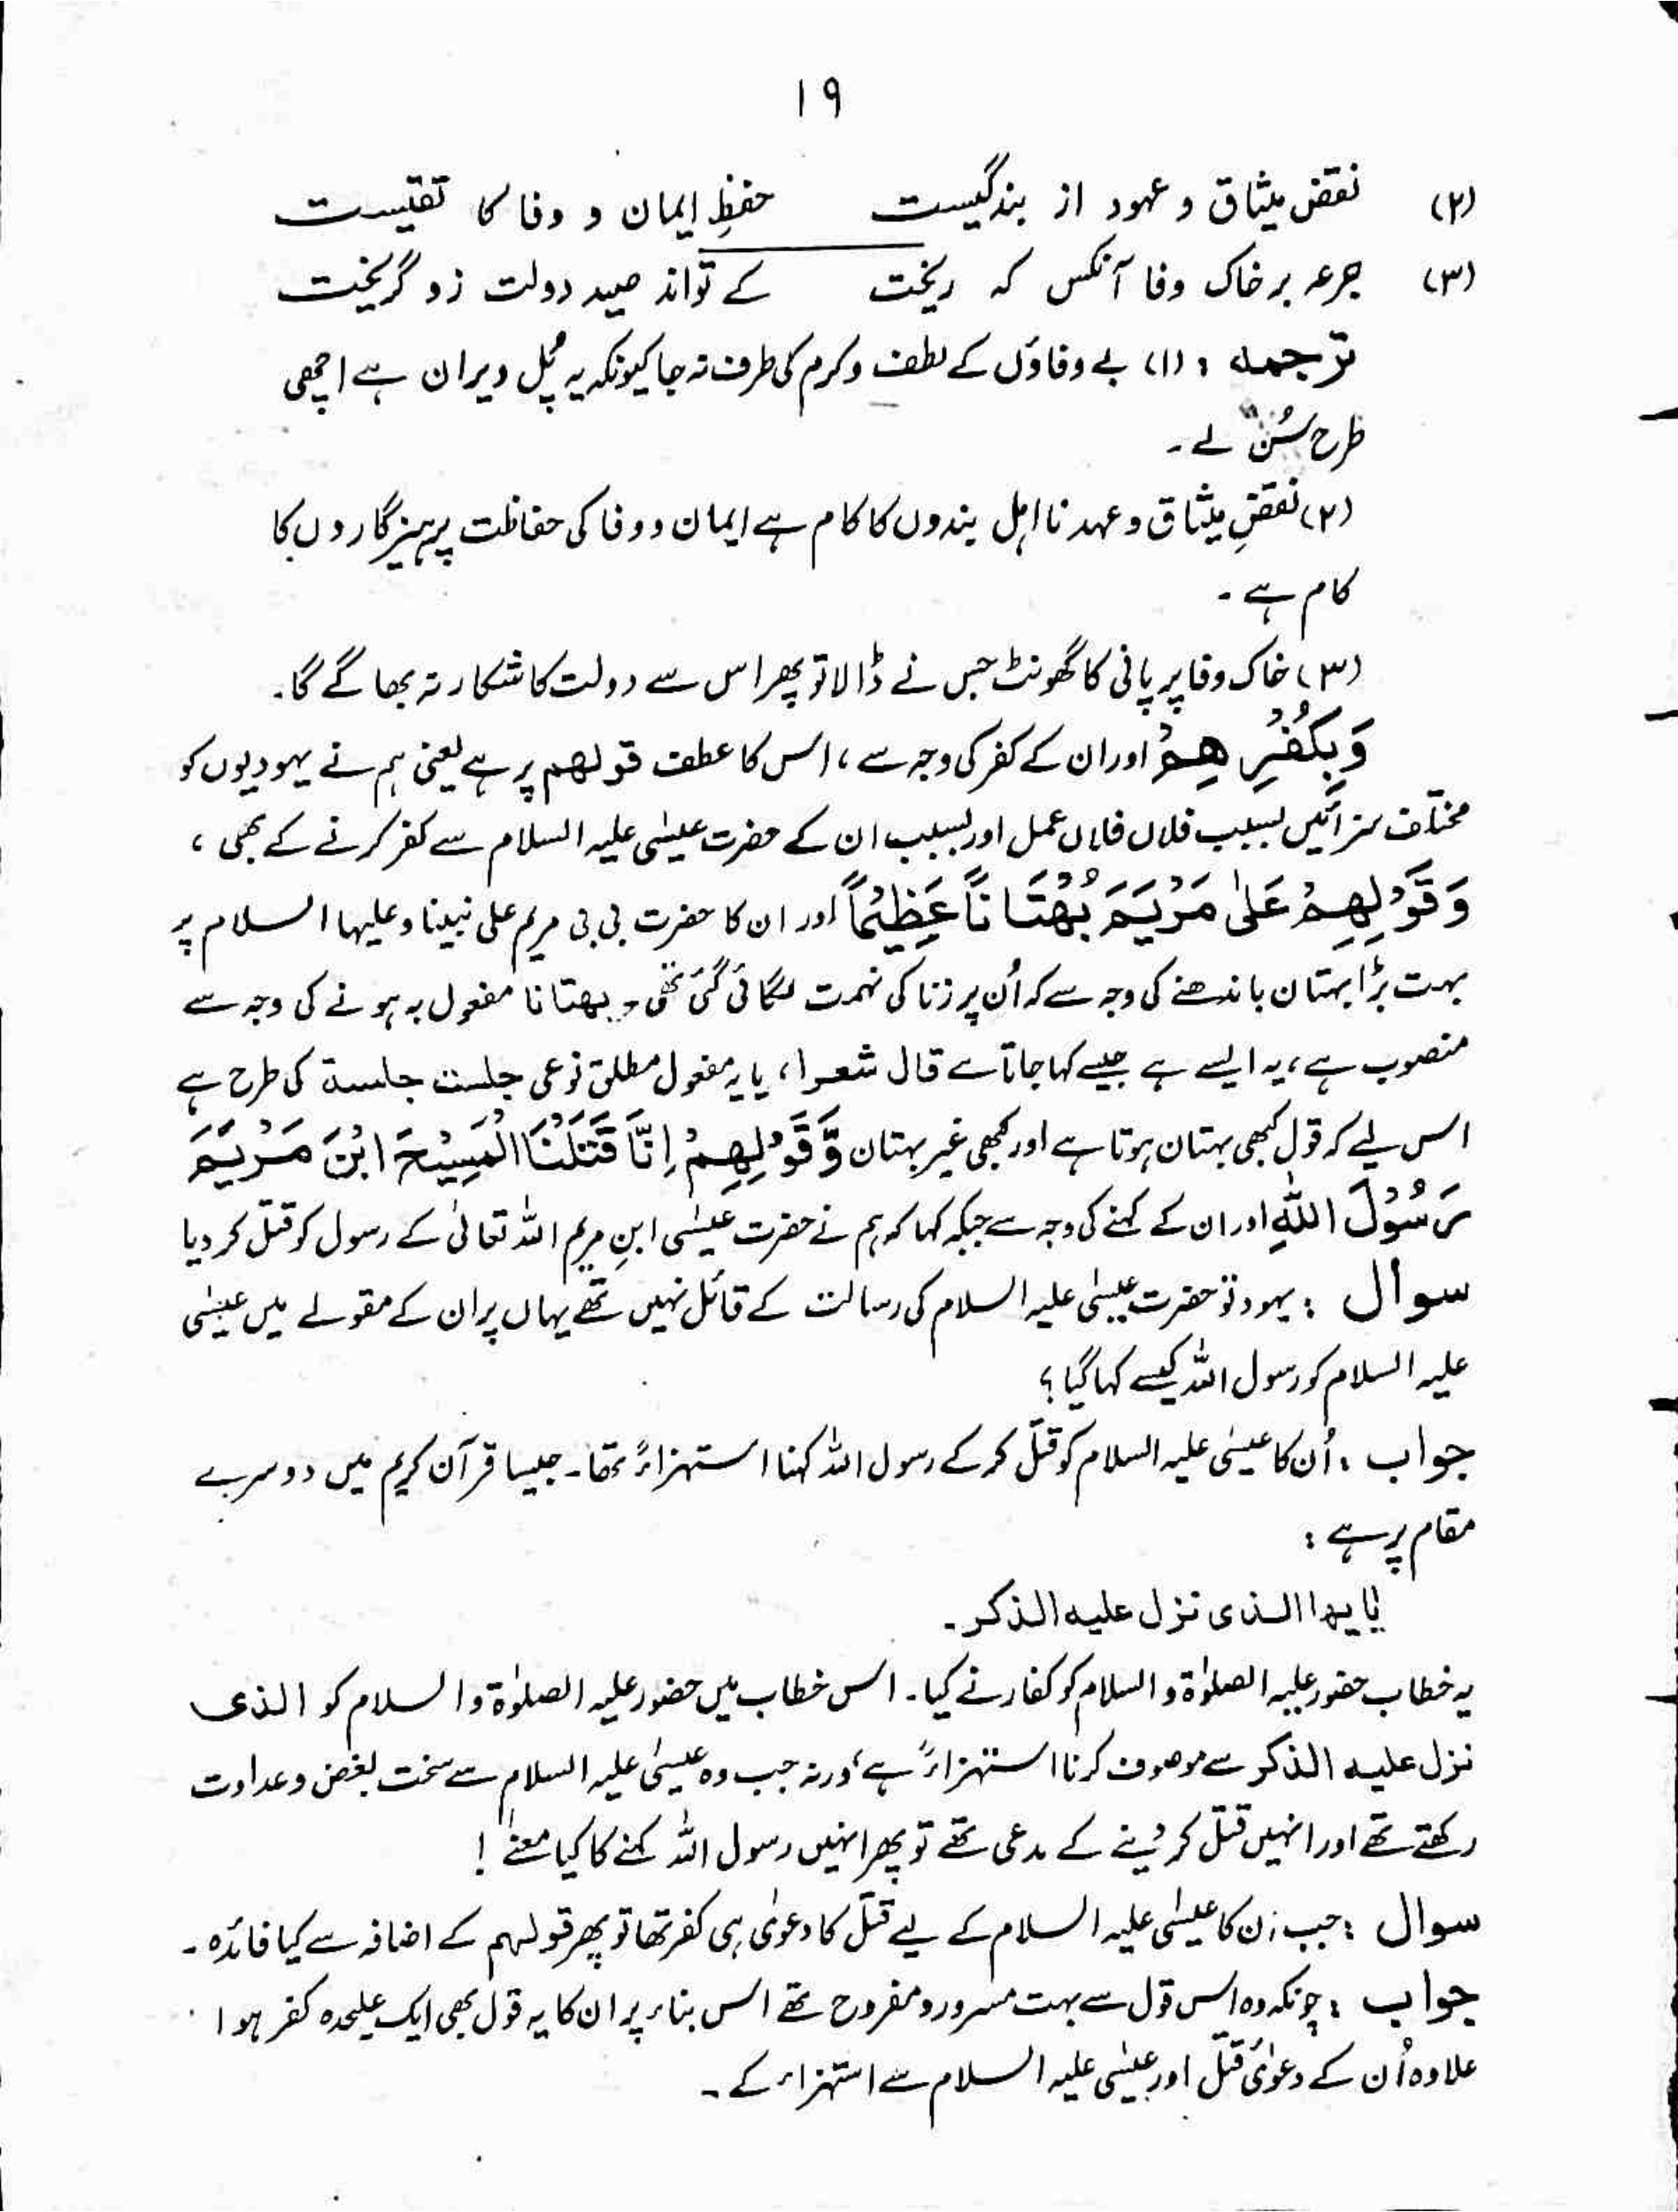 ۱۹
(۲) نقض میثاق و عہود از بندگیست حفظِ ایمان و وفا کا تقیست
(۳) جرعہ بر خاک وفا آنکس کہ ریخت کے تواند صید دولت زو گریخت
ترجمہ : (۱) بے وفاؤں کے لطف و کرم کی طرف نہ جا کیونکہ یہ پُل ویران ہے اچھی
طرح سُن لے ۔
(۲) نقضِ میثاق و عہد نااہل بندوں کا کام ہے ایمان و وفا کی حفاظت پرہیزگاروں کا
کام ہے ۔
(۳) خاک وفا پر پانی کا گھونٹ جس نے ڈالا تو پھر اس سے دولت کا شکار نہ بھاگے گا۔
وَبِكُفْرِهِمْ اور ان کے کفر کی وجہ سے ، اس کا عطف قولھم پر ہے یعنی ہم نے یہودیوں کو
مختلف سزائیں بسبب فلاں فلاں عمل اور بسبب ان کے حضرت عیسٰی علیہ السلام سے کفر کرنے کے بھی ،
وَقَوْلِهِمْ عَلٰى مَرْيَمَ بُهْتَانًا عَظِيْمًا اور ان کا حضرت بی بی مریم علی نبینا وعلیہا السلام پر
بہت بڑا بہتان باندھنے کی وجہ سے کہ اُن پر زنا کی تہمت لگائی گئی تھی ۔ بھتانا مفعول بہ ہونے کی وجہ سے
منصوب ہے ، یہ ایسے ہے جیسے کہا جاتا ہے قال شعرا ، یا یہ مفعول مطلق نوعی جلست جلسۃ کی طرح ہے
اس لیے کہ قول کبھی بہتان ہوتا ہے اور کبھی غیر بہتان وَّقَوْلِهِمْ اِنَّا قَتَلْنَا الْمَسِيْحَ ابْنَ مَرْيَمَ
رَسُوْلَ اللّٰهِ اور ان کے کہنے کی وجہ سے جبکہ کہا کہ ہم نے حضرت عیسٰی ابنِ مریم اللہ تعالیٰ کے رسول کو قتل کر دیا
سوال : یہود تو حضرت عیسٰی علیہ السلام کی رسالت کے قائل نہیں تھے یہاں پر ان کے مقولے میں عیسٰی
علیہ السلام کو رسول اللہ کیسے کہا گیا ؟
جواب : اُن کا عیسٰی علیہ السلام کو قتل کر کے رسول اللہ کہنا استہزاءً تھا۔ جیسا قرآن کریم میں دوسرے
مقام پر ہے :
یٰایھا الذی نزل علیہ الذکر ۔
یہ خطاب حضور علیہ الصلوٰۃ والسلام کو کفار نے کیا۔ اس خطاب میں حضور علیہ الصلوٰۃ والسلام کو الذی
نزل علیہ الذکر سے موصوف کرنا استہزاءً ہے ورنہ جب وہ عیسٰی علیہ السلام سے سخت بغض و عداوت
رکھتے تھے اور انہیں قتل کر دینے کے مدعی تھے تو پھر انہیں رسول اللہ کہنے کا کیا معنے !
سوال : جب ان کا عیسٰی علیہ السلام کے لیے قتل کا دعوٰی ہی کفر تھا تو پھر قولہم کے اضافہ سے کیا فائدہ ۔
جواب : چونکہ وہ اس قول سے بہت مسرور و مفروح تھے اس بناء پر ان کا یہ قول بھی ایک علیحدہ کفر ہوا
علاوہ اُن کے دعوٰیٔ قتل اور عیسٰی علیہ السلام سے استہزاء کے ۔